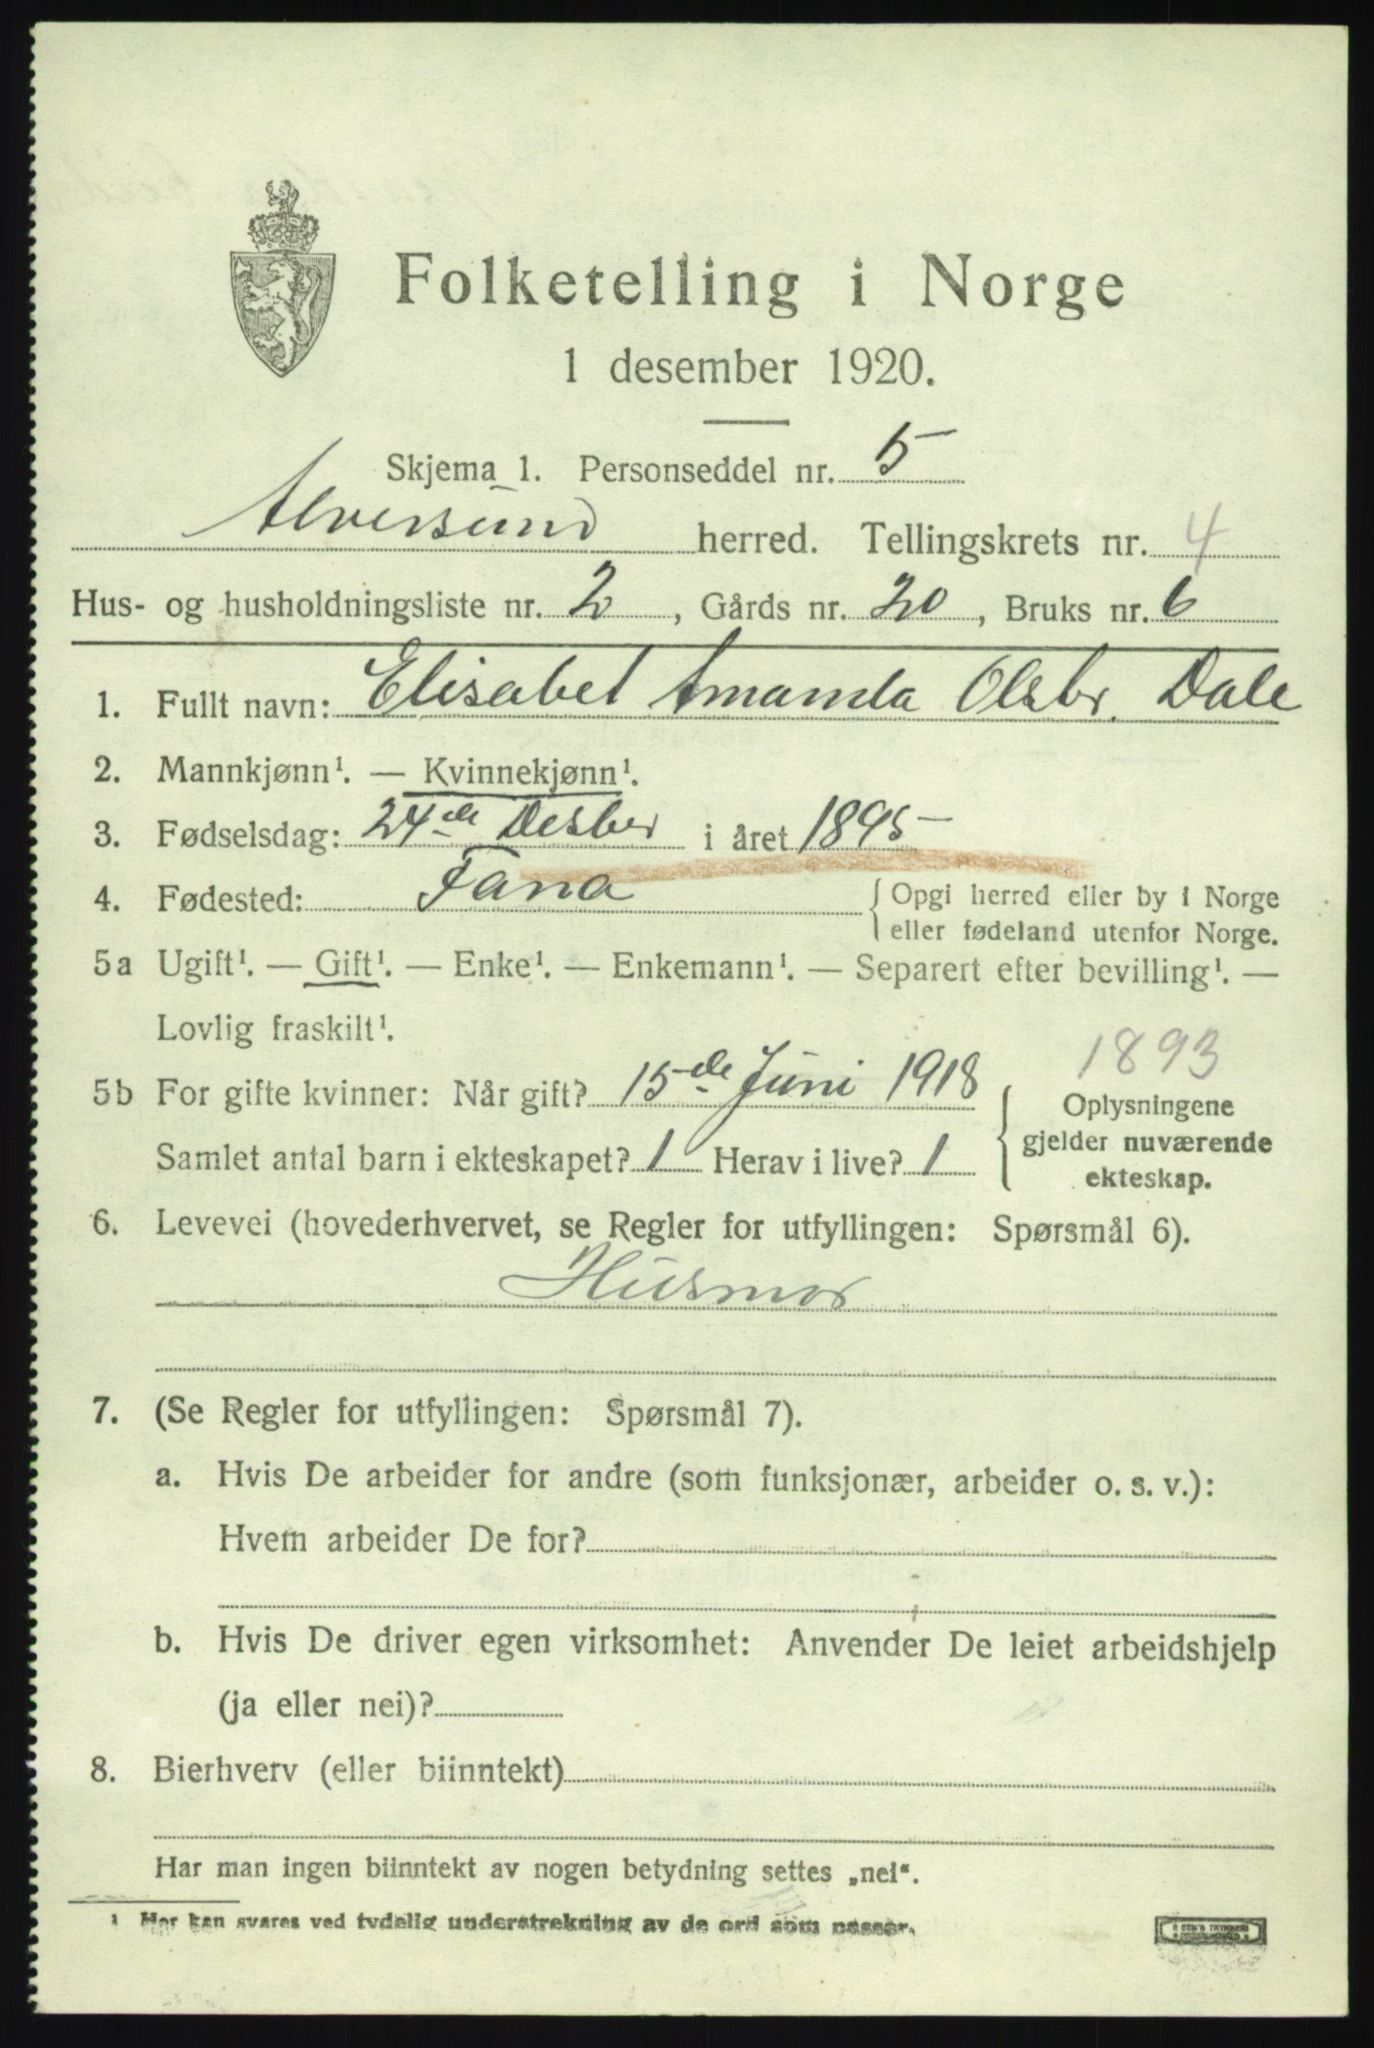 Folketelling i Norge
1 desember 1920.
Skjema 1. Personseddel nr. 5
Alversund herred. Tellingskrets nr. 4
Hus- og husholdningsliste nr. 2, Gårds nr. 20, Bruks nr. 6
1. Fullt navn: Elisabet Amanda Olsbr. Dale
2. Mannkjønn¹. — Kvinnekjønn¹.
3. Fødselsdag: 24de Desber i året 1895
4. Fødested: Fana { Opgi herred eller by i Norge
eller fødeland utenfor Norge.
5a Ugift¹. — Gift¹. — Enke¹. — Enkemann¹. — Separert efter bevilling¹. —
Lovlig fraskilt¹.
1893
5b For gifte kvinner: Når gift? 15de Juni 1918
Samlet antal barn i ekteskapet? 1 Herav i live? 1
{ Oplysningene
gjelder nuværende
ekteskap.
6. Levevei (hovederhvervet, se Regler for utfyllingen: Spørsmål 6).
Husmor
7. (Se Regler for utfyllingen: Spørsmål 7).
a. Hvis De arbeider for andre (som funksjonær, arbeider o. s. v.):
Hvem arbeider De for?
b. Hvis De driver egen virksomhet: Anvender De leiet arbeidshjelp
(ja eller nei)?
8. Bierhverv (eller biinntekt)
Har man ingen biinntekt av nogen betydning settes „nei“.
¹ Her kan svares ved tydelig understrekning av de ord som passer.